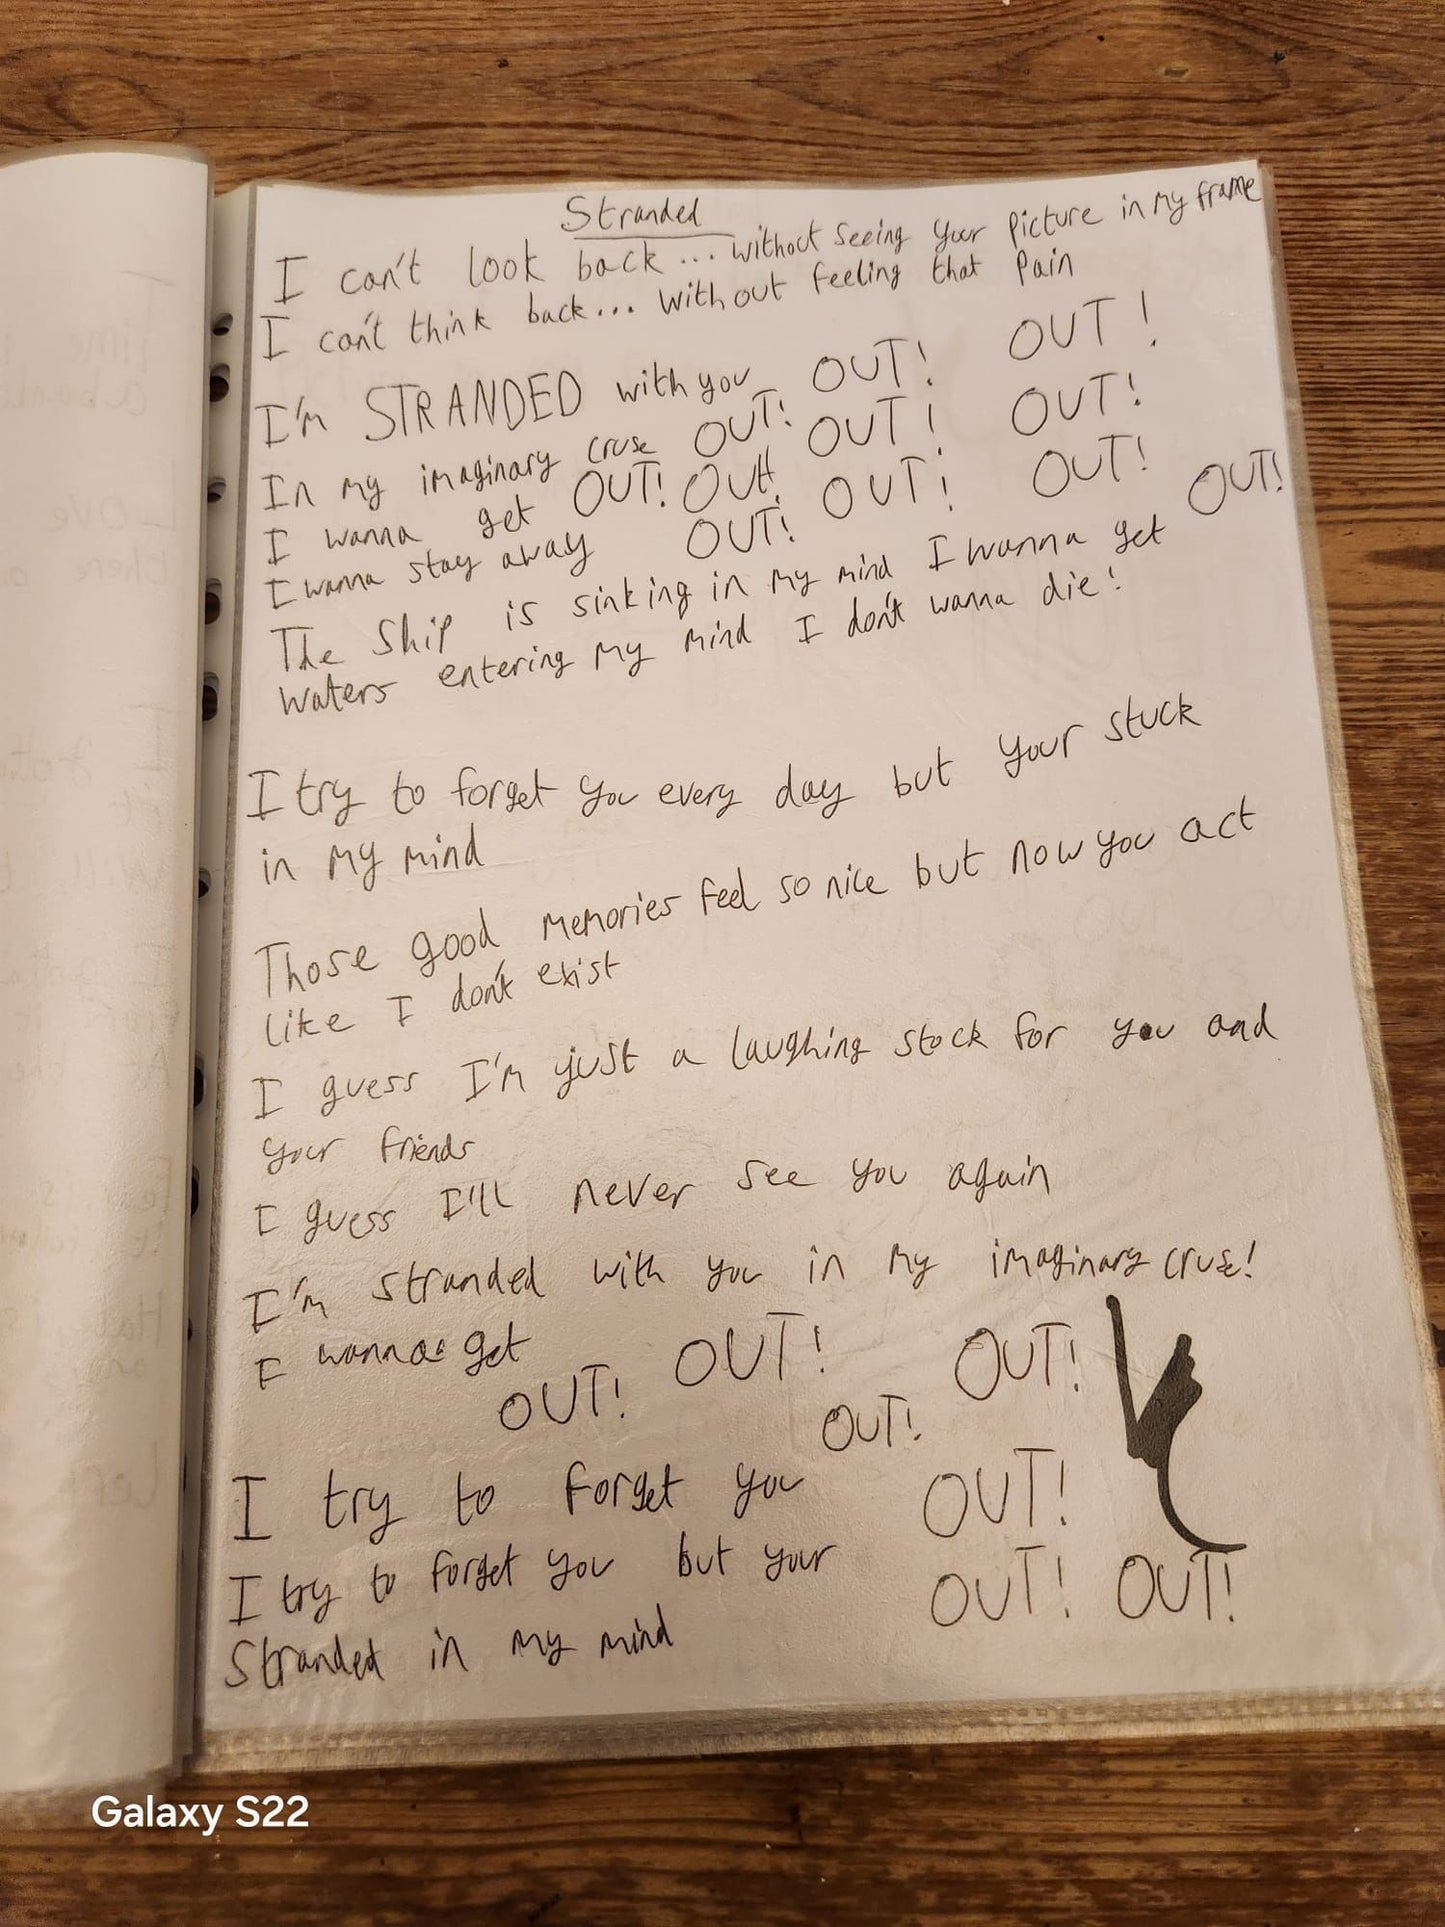 Stranded
I can't look back... without seeing your picture in my frame
I can't think back... without feeling that pain
I'm STRANDED with you OUT! OUT!
In my imaginary cruse OUT! OUT! OUT!
I wanna get OUT! OUT! OUT! OUT!
I wanna stay away OUT!
The ship is sinking in my mind I wanna get OUT!
Waters entering my mind I don't wanna die!
I try to forget you every day but your stuck
in my mind
Those good memories feel so nice but now you act
like I don't exist
I guess I'm just a laughing stock for you and
your friends
I guess I'll never see you again
I'm stranded with you in my imaginary cruse!
I wanna get OUT! OUT! OUT!
OUT!
I try to forget you OUT!
I try to forget you but your OUT! OUT!
Stranded in my mind
Galaxy S22